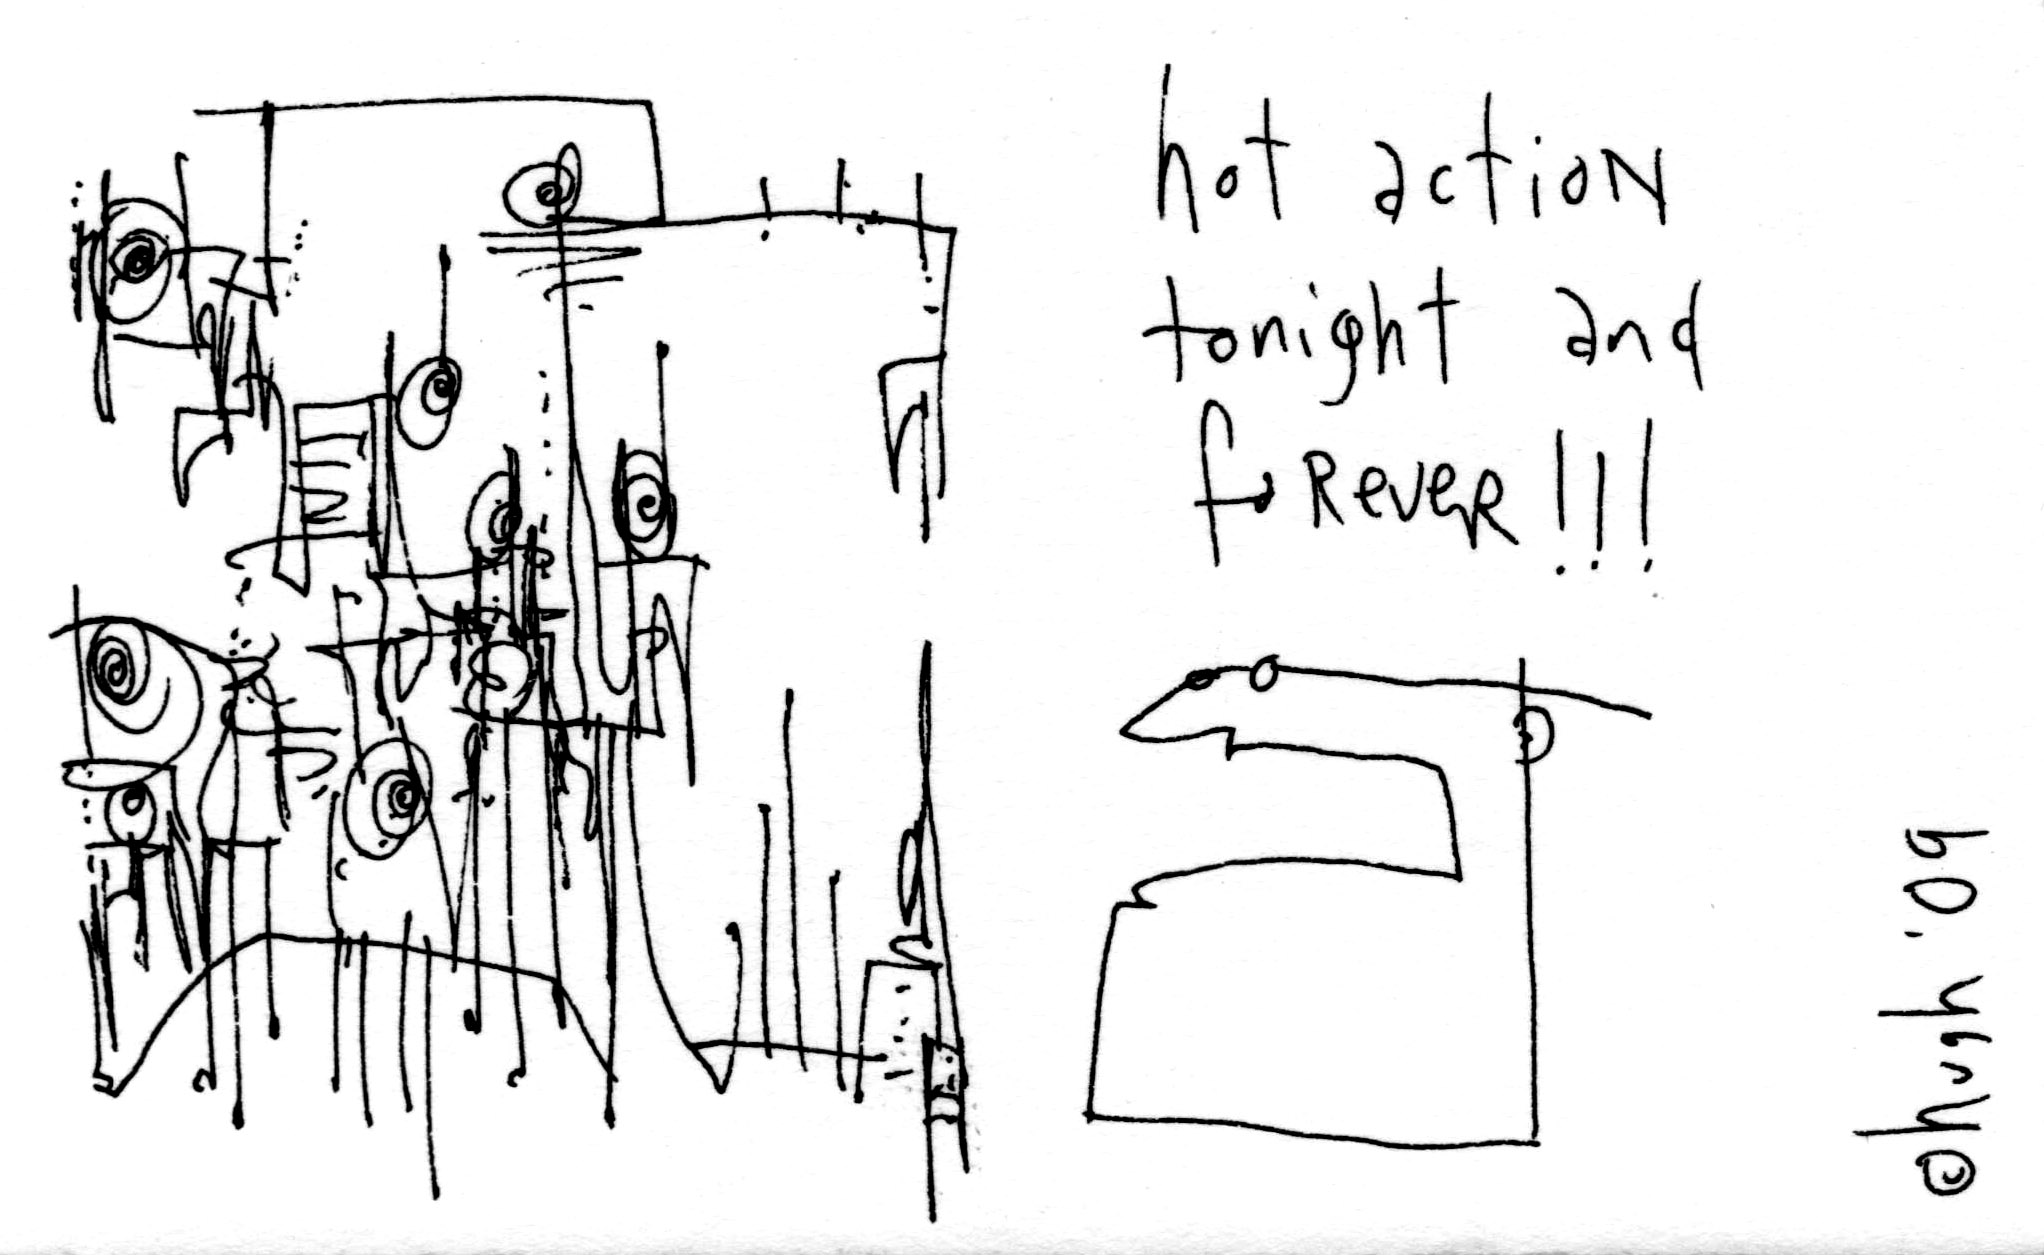 hot action
tonight and
forever!!!
©hugh '09